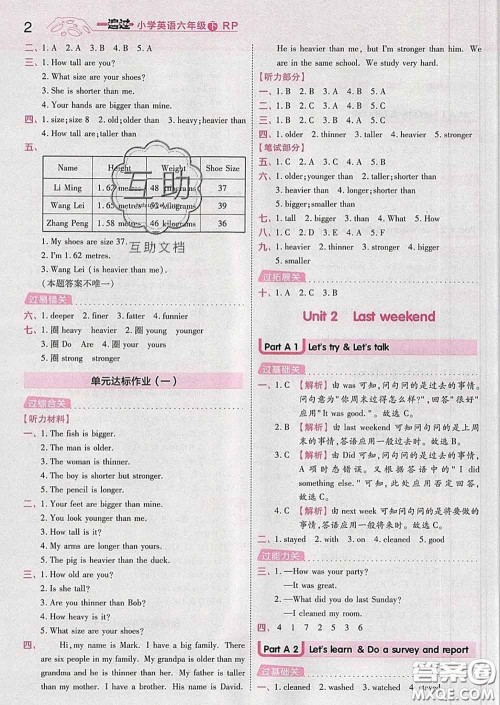 2 一遍过 小学英语六年级 下 RP
二、1. A 2. A 3. B 4. B 5. A
三、1. How tall are you?
2. What size are your shoes?
3. She is shorter than me.
4. Your hands are bigger than mine.
四、1. size; size 8 2. old; older than 3. heavy; heavier than
4. How tall; taller than
五、
Name Height Weight Shoe Size
Li Ming 1.62 metres 48 kilograms 37
Wang Lei 1.65 metres kilograms 39
Zhang Peng 1.6 metres 46 kilograms 36
1. My shoes are size 37.
2. I'm 1.62 metres.
3. Wang Lei (is heavier than me).
(本题答案不唯一)
过易错关
六、1. deeper 2. finer 3. fatter 4. funnier
七、1. 圈 heavy heavier 2. 圈 young younger
3. 圈 Do Are 4. 圈 younger young
单元达标作业(一)
过综合关
【听力材料】
一、1. The fish is bigger.
2. The man is older.
3. The woman is thinner.
4. The boy is shorter but stronger.
5. The pencil is longer.
二、1. Your feet are bigger than mine.
2. You look younger than me.
3. I am shorter than you.
4. My arms are longer than yours.
5. The pig is heavier than the duck.
三、1. How old are you?
2. Is she tall?
3. Are you thinner than Bob?
4. How heavy is Mary?
5. What size are your shoes?
四、 Hi, my name is Mark. I have a big family. There
are six people in my family. My grandpa is older than
my grandma. My father is taller and stronger
than my mother. I have a brother. His name is David.
He is heavier than me, but I'm stronger than him. We
are in the same school. We study very hard.
【听力部分】
一、1. B 2. B 3. A 4. B 5. A
二、1. C 2. B 3. B 4. C 5. A
三、1. B 2. A 3. A 4. A 5. B
四、1. older 2. thinner 3. taller 4. heavier 5. stronger
【笔试部分】
五、1. C 2. C 3. B 4. B 5. C
六、1. younger than 2. longer than 3. smaller than
4. heavier than 5. stronger than
七、1. tall 2. than 3. bigger 4. How 5. heavier
八、1. B 2. A 3. B 4. C
九、1. heavier than 2. thinner than 3. taller than
4. shorter than
过拓展关
十、1. A 2. C 3. B
Unit 2 Last weekend
Part A 1 Let's try & Let's talk
过基础关
一、1. C 【解析】由 was 可知,问句问的是过去的事情。
问句意为"你的周末过得怎样?",回答"很好"
应用"It was good."。故选 C。
2. B 【解析】由 last weekend 可知问句问的是上周
末的事情,答语应用一般过去时。故选 B。
3. C 【解析】由 Did 可知,问句问的是过去的事情,
A 项时态错误。又根据答语中的"I did
something else."可知,此处应用否定回答。
故选 C。
4. C 【解析】由 next weekend 可知问句问的是将来
的事情,答语应用一般将来时。故选 C。
二、1. stayed 2. with 3. did 4. washed 5. cleaned
过能力关
三、—How was your party?
—It was great.
—What did you do last Sunday?
—I cleaned my room.
四、4 1 7 2 5 3 6
Part A 2 Let's learn & Do a survey and report
过基础关
一、1. cleaned 2. washed 3. watched 4. stayed
互助
互助文档
答案圈
MXQE.COM